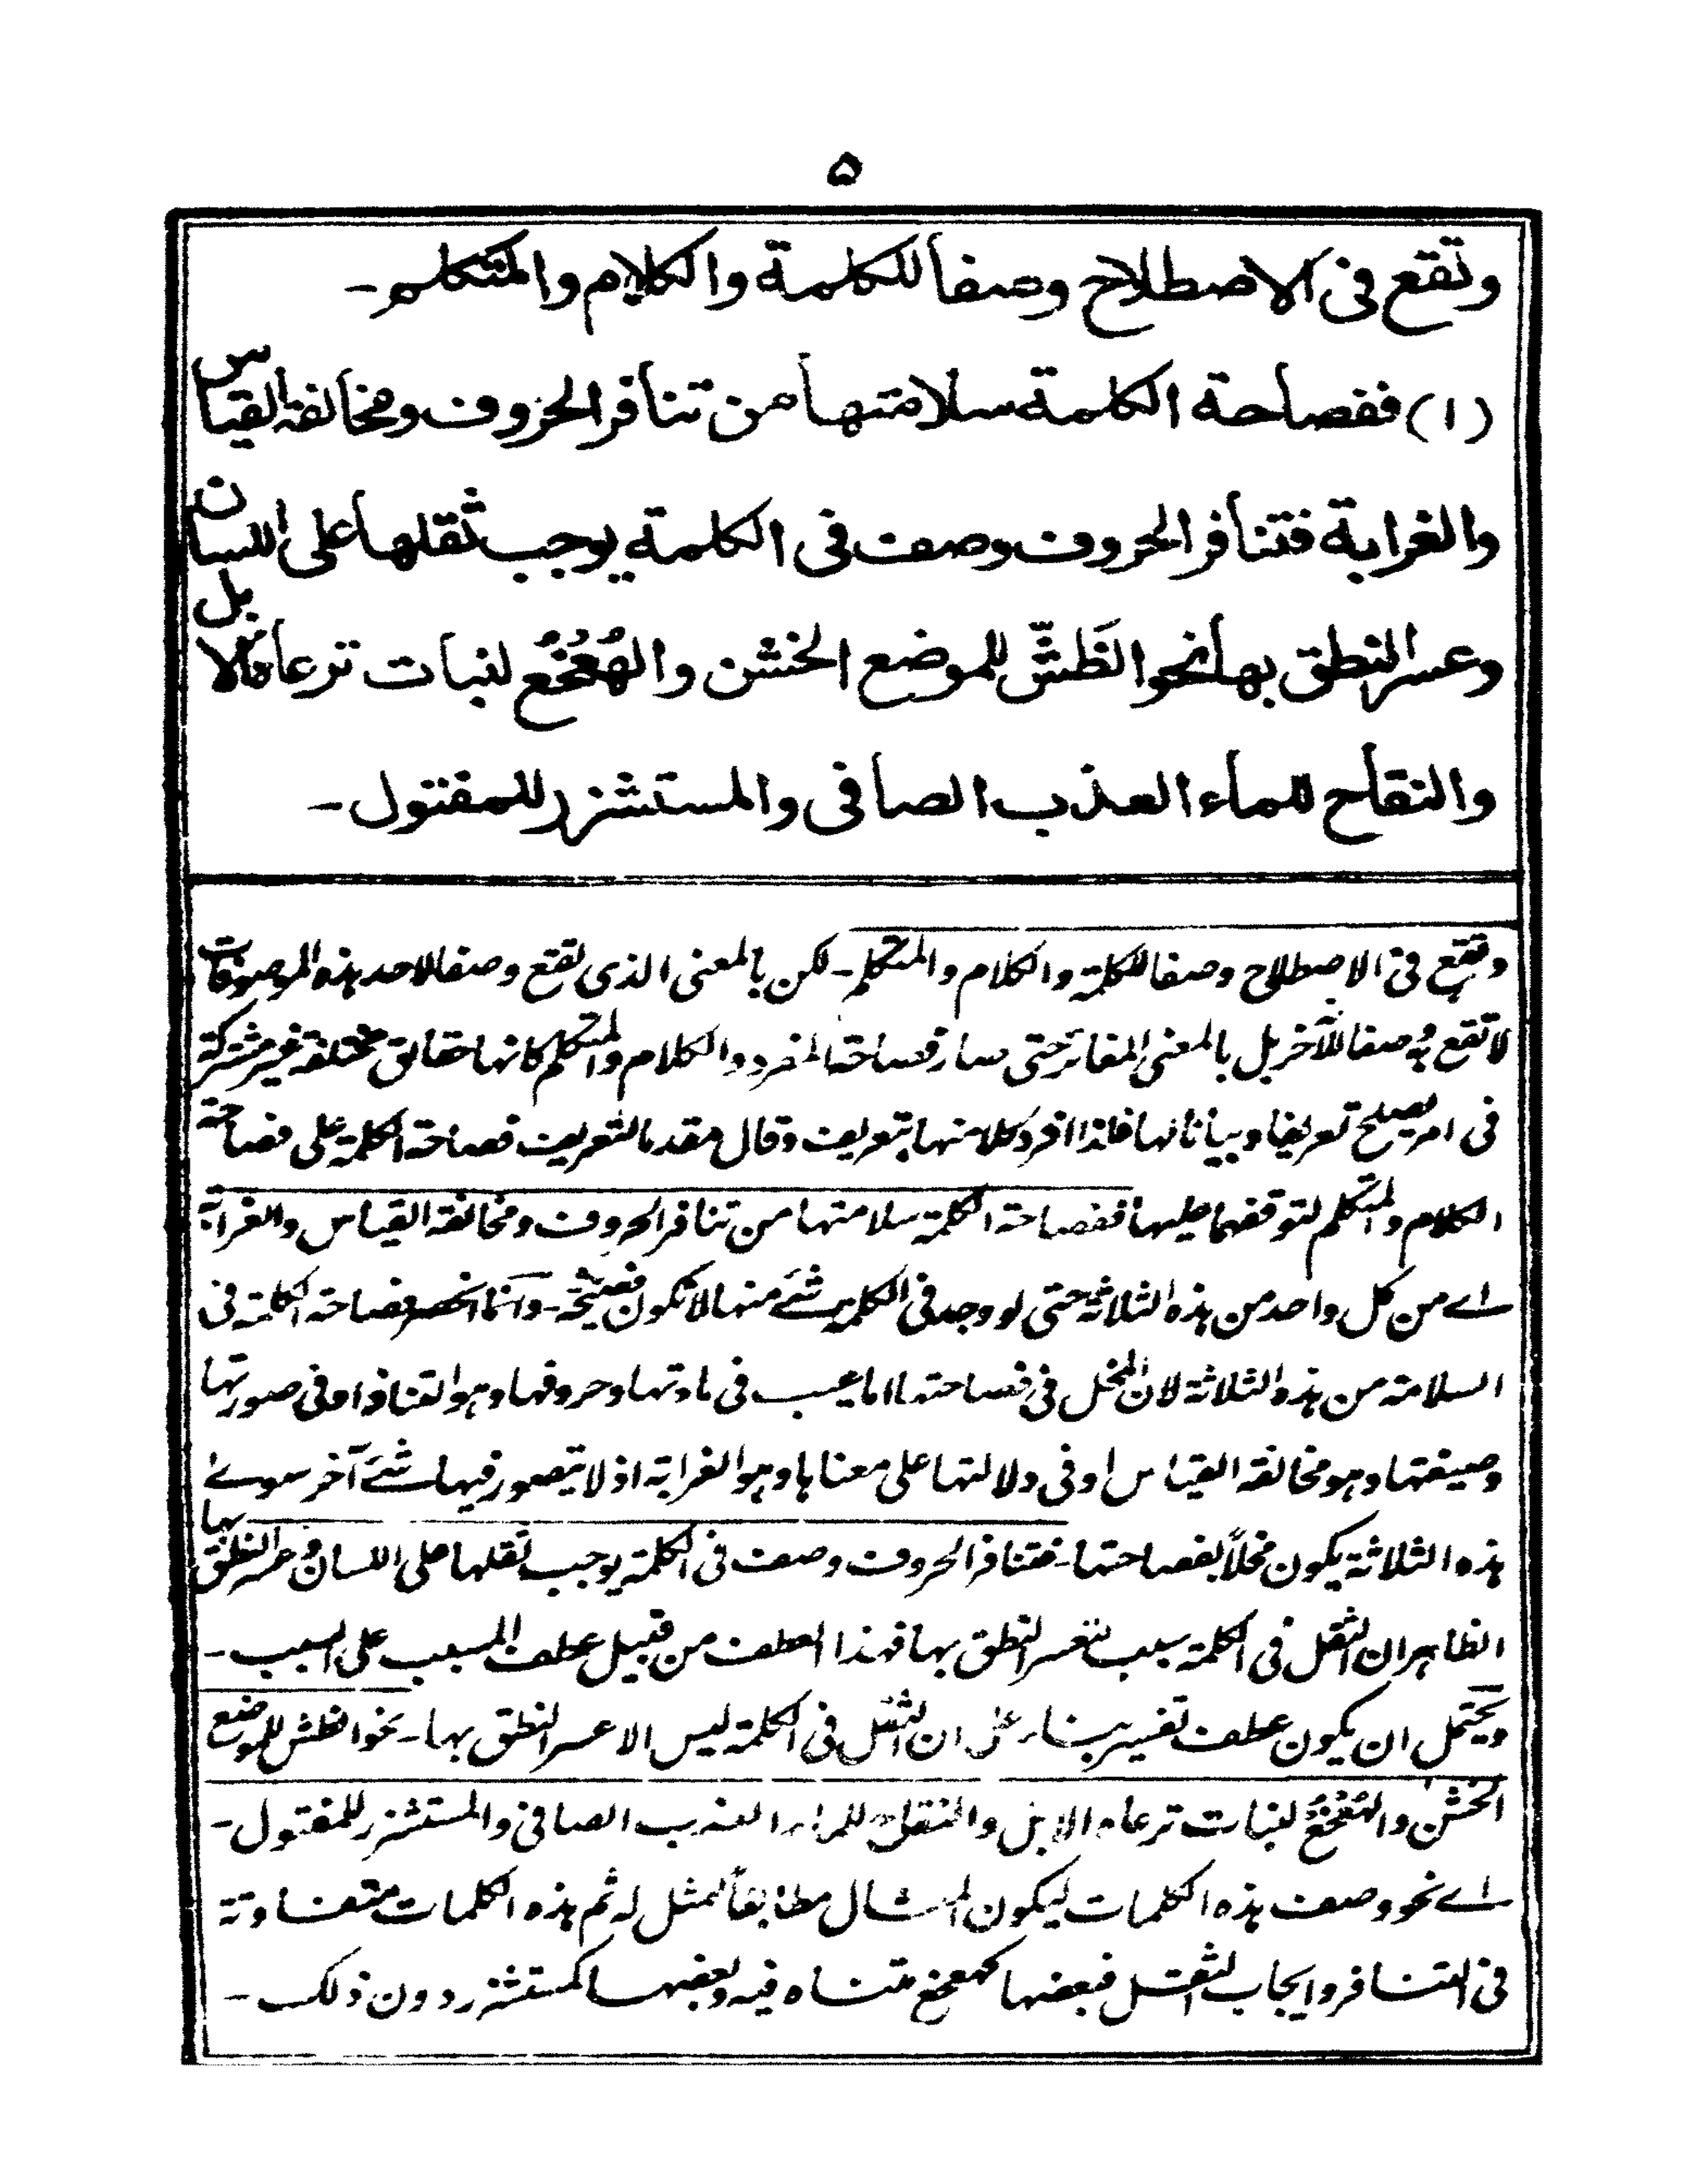 ۵
وتقع فى الاصطلاح وصفا للكلمة والكلام والمتكلم -
(١) ففصاحة الكلمة سلامتها من تنافر الحروف ومخالفة القياس
والغرابة فتنافر الحروف وصف فى الكلمة يوجب ثقلها على اللسان
وعسر النطق بها نحو الظَشّ للموضع الخشن والهُعْخُعُ لنبات ترعاه الابل
والنقاح للماء العذب الصافى والمستشزر للمفتول -
وتقع فى الاصطلاح وصفا للكلمة والكلام والمتكلم - لكن بالمعنى الذى تقع وصفا لاحد هذه الموصوفات
لا تقع به وصفا للآخر بل بالمعنى المغاير حتى صار فصاحة المفرد والكلام والمتكلم كانها حقائق مختلفة غير مشتركة
فى امر يصلح تعريفا وبيانا لها فلذا افرد كلا منها بتعريف وقال مقدما لتعريف فصاحة الكلمة على فصاحة
الكلام والمتكلم لتوقفهما عليها ففصاحة الكلمة سلامتها من تنافر الحروف ومخالفة القياس والغرابة
اے من كل واحد من هذه الثلاثة حتى لو وجد فى الكلمة شئ منها لا تكون فصيحة - وانما انحصر فصاحة الكلمة فى
السلامة من هذه الثلاثة لان المخل فى فصاحتها اما عيب فى مادتها وحروفها وهو التنافر او فى صورتها
وصيغتها وهو مخالفة القياس او فى دلالتها على معناها وهو الغرابة اذ لا يتصور فيها شئ آخر سوے
هذه الثلاثة يكون مخلاً بفصاحتها - فتنافر الحروف وصف فى الكلمة يوجب ثقلها على اللسان وعسر النطق بها
الظاهر ان الثقل فى الكلمة سبب لتعسر النطق بها فهذا العطف من قبيل عطف المسبب على السبب -
ويحتمل ان يكون عطف تفسير بناء على ان الثقل فى الكلمة ليس الا عسر النطق بها - نحو الظش للموضع
الخشن والهُعْخُعُ لنبات ترعاه الابل والنقاح للماء العذب الصافى والمستشزر للمفتول -
اے نحو وصف هذه الكلمات ليكون المثال مطابقاً للمثل له ثم هذه الكلمات متفاوتة
فى التنافر وايجاب الثقل فبعضها كهعخع متناه فيه وبعضها كمستشزر دون ذلك -